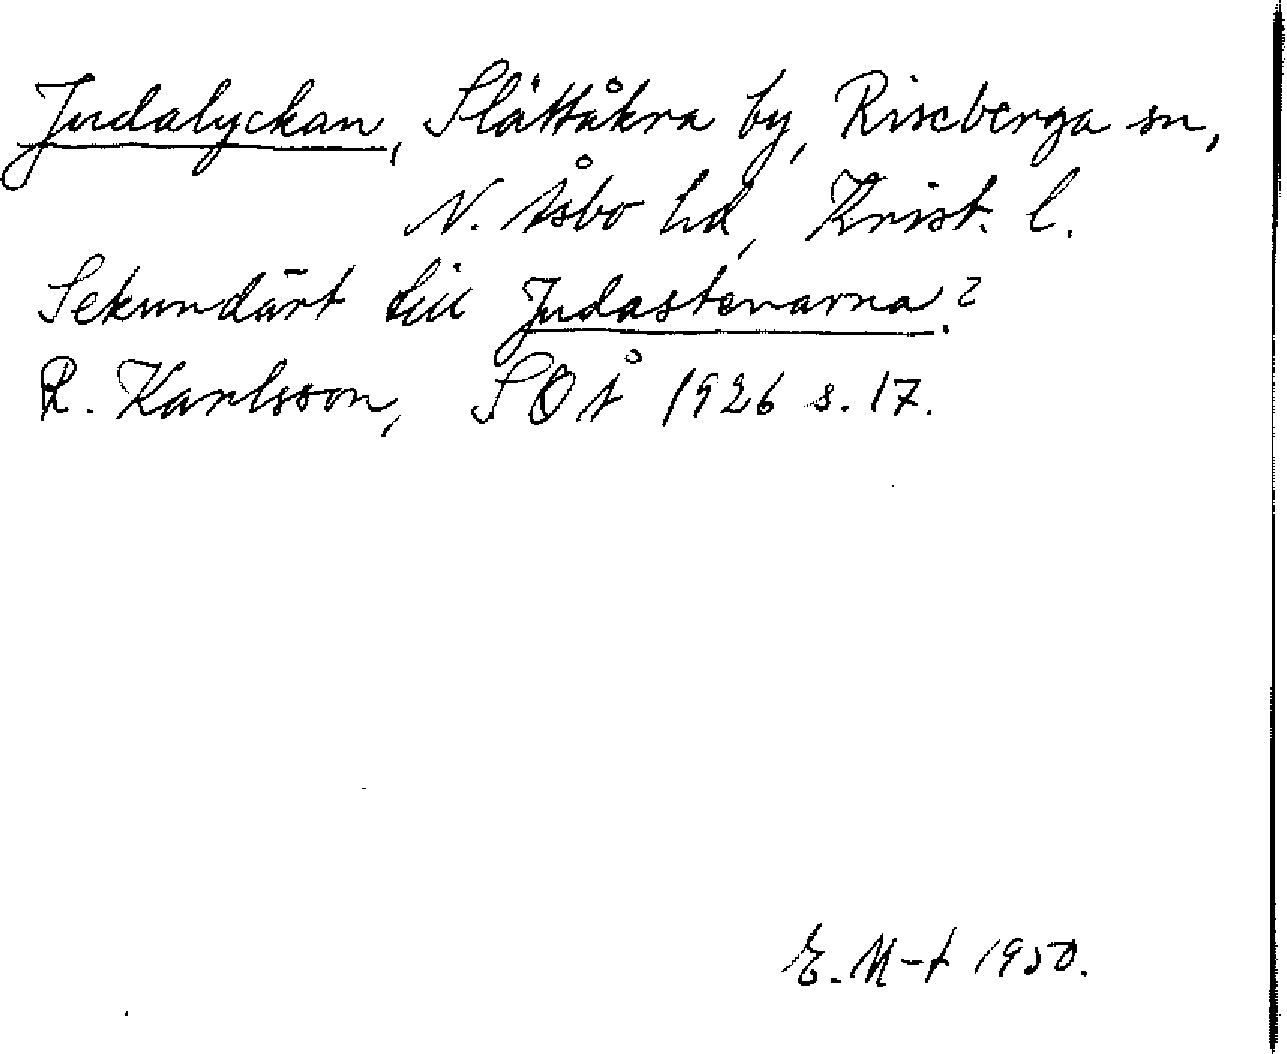 Judalyckan, Slättåkra by, Riseberga sn,
N. Åsbo hd, Krist. l.
Sekundärt till Judastenarna?
R. Karlsson, SOÅ 1926 s. 17.
E. M-t 1950.